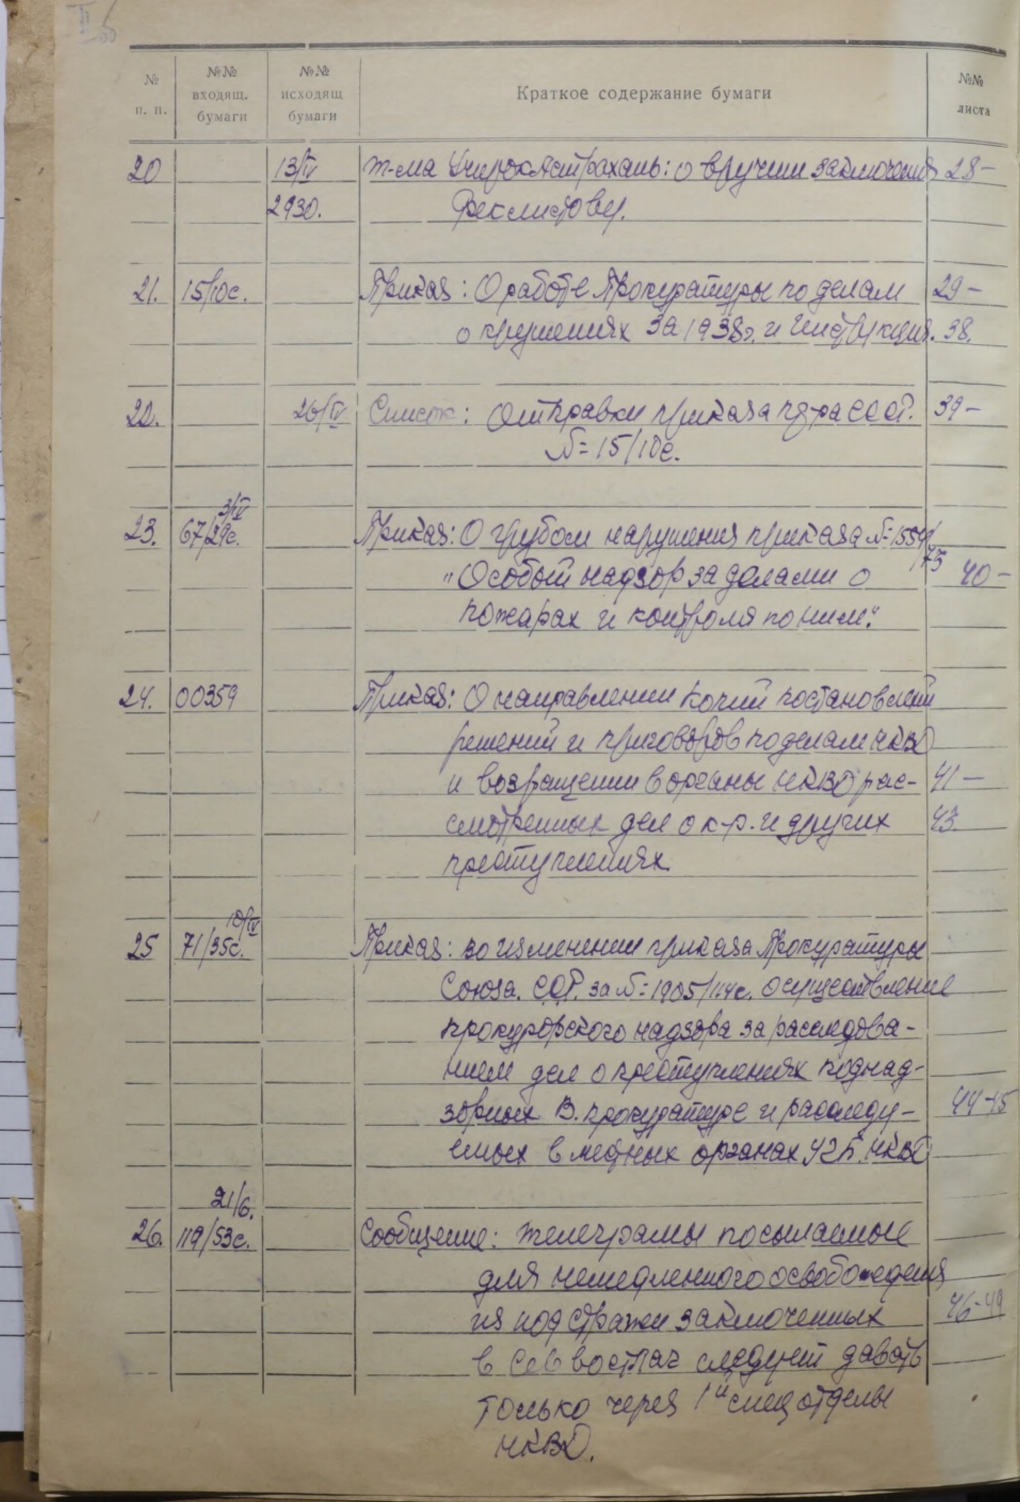 № п. п. №№ входящ. бумаги №№ исходящ бумаги Краткое содержание бумаги №№ листа
20 13/IV т-ма Астрахань: о вручении заключения 28-
2930. Феклистову.
21. 15/10с. Приказ: О работе Прокуратуры по делам 29-
о крушениях за 1938г. и Инструкция. 38.
22. 26/IV Список: Отправки приказа пр-ра СССР. 39-
№=15/10с.
3/IV
23. 67/29с. Приказ: О грубом нарушения приказа №=1559/
75
"Особый надзор за делами о 40-
пожарах и контроля по ним."
24. 00359 Приказ: О направлении копий постановлений
решений и приговоров по делам НКВД
и возвращении в органы НКВД рас- 41-
смотренных дел о к-р. и других 43.
преступлениях
10/IV
25 71/35с. Приказ: во изменении приказа Прокуратуры
Союза. ССР. за №=1905/114с. осуществление
прокурорского надзора за расследова-
нием дел о преступлениях поднад-
зорных В. прокуратуре и расследу- 44-45
емых в местных органах УГБ. НКВД
21/6.
26. 119/53с. Сообщение: телеграмы посылаемые
для немедленного освобождения
из под стражи заключенных 46-49
в Севвостлаг следует давать
только через 1й спец отделы
НКВД.